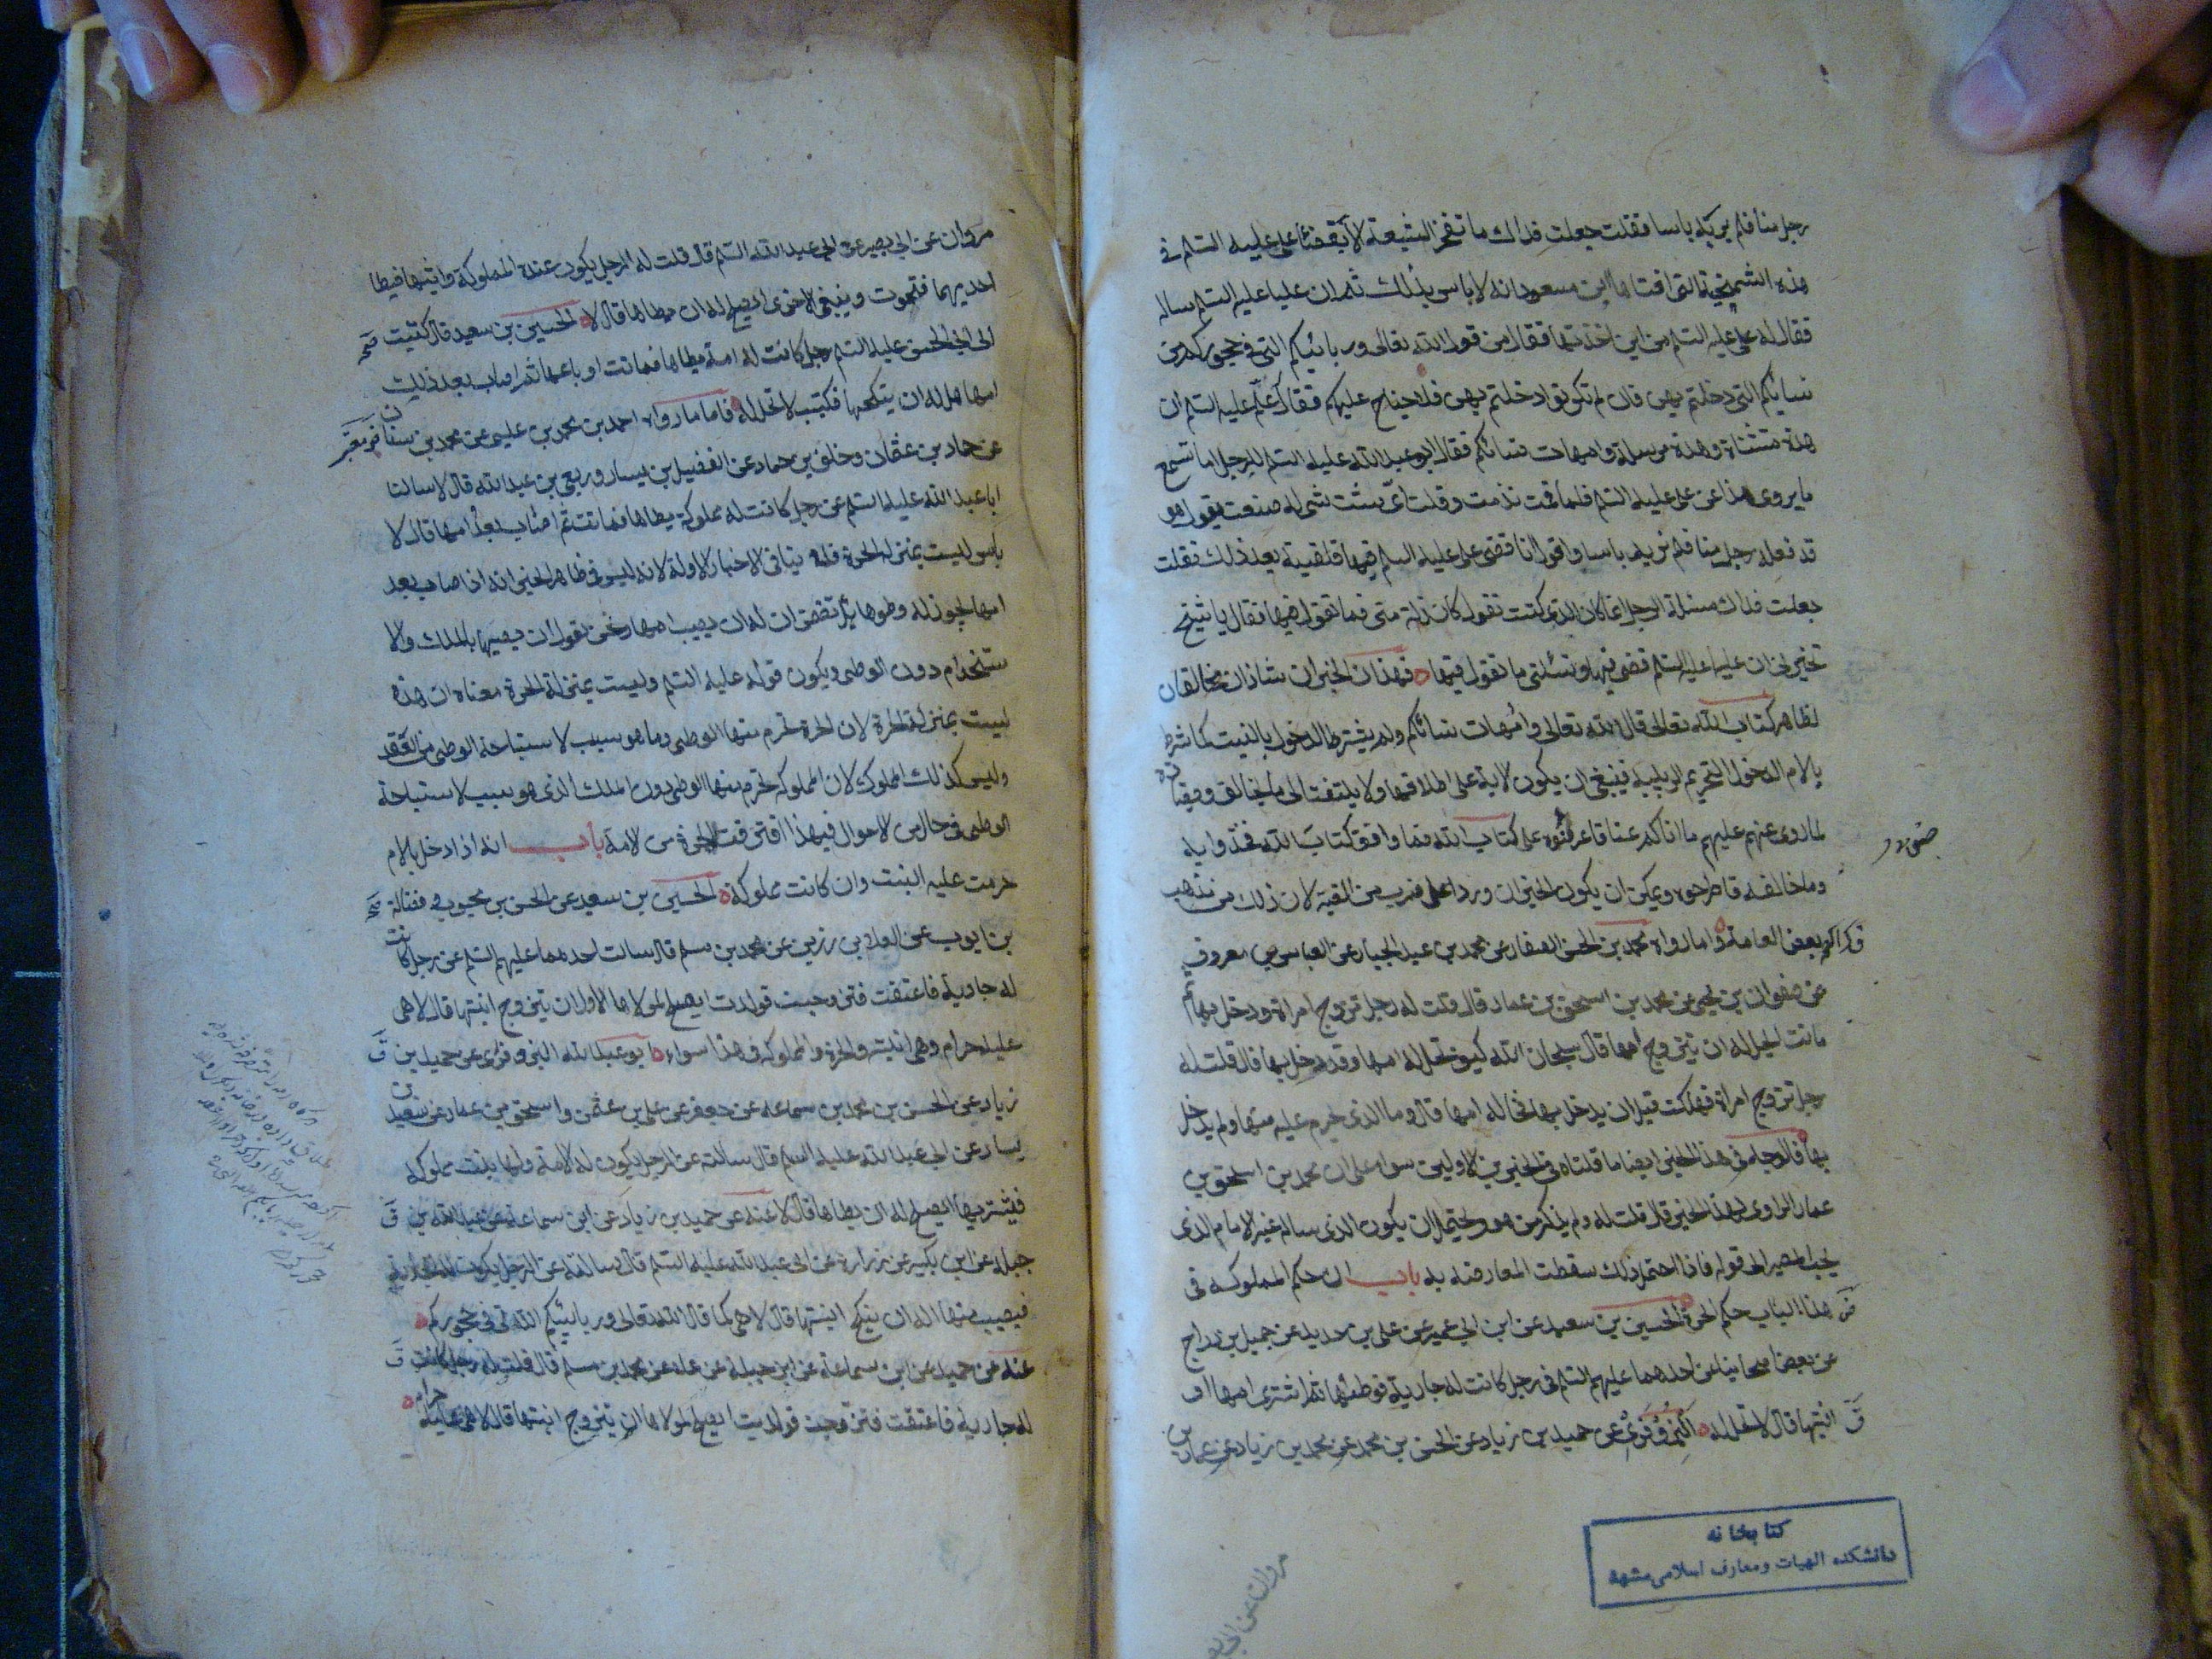 رجل منا فلم ير به باسا فقلت جعلت فداك ما تفخر الشيعة الا بقضاء علي عليه السلم في
هذه الشمخية التي افتاها ابن مسعود انه لا باس بذلك ثم ان عليا عليه السلم ساله
فقال له علي عليه السلم من اين اخذتها فقال من قول الله تعالى وربائبكم التي في حجوركم من
نسائكم التي دخلتم بهن فان لم تكونوا دخلتم بهن فلا جناح عليكم فقال علي عليه السلم ان
هذه مستثناة وهذه مرسلة وامهات نسائكم فقال ابو عبد الله عليه السلم للرجل اما تسمع
ما يروى هذا عن علي عليه السلم فلما قمت ندمت وقلت اي شئ صنعت يقول هو
قد فعله رجل منا فلم نر به باسا واقول انا قضى علي عليه السلم فيها فلقيته بعد ذلك فقلت
جعلت فداك مسئلة الرجل انما كان الذي كنت تقول كان زلة مني فما تقول فيها فقال يا شيخ
تخبرني ان عليا عليه السلم قضى فيها وتسئلني ما تقول فيها فهذان الخبران شاذان مخالفان
لظاهر كتاب الله تعالى قال الله تعالى وامهات نسائكم ولم يشترط الدخول بالبنت كما شرط
بالام الدخول لتحريم الربيبة فينبغي ان يكون الاية على اطلاقها ولا يلتفت الى ما يخالفه ويضاده
لما روي عنهم عليهم ما اتاكم عنا فاعرضوه على كتاب الله فما وافق كتاب الله فخذوا به
وما خالفه فاطرحوه ويمكن ان يكون الخبران وردا على ضرب من التقية لان ذلك من مذهب
بعض العامة واما ما رواه محمد بن الحسن الصفار عن محمد بن عبد الجبار عن العباس بن معروف
عن صفوان بن يحيى عن محمد بن اسحق بن عمار قال قلت له رجل تزوج امراة ودخل بها ثم
ماتت ايحل له ان يتزوج امها قال سبحان الله كيف تحل له امها وقد دخل بها قال قلت له
رجل تزوج امراة فهلكت قبل ان يدخل بها تحل له امها قال وما الذي يحرم عليه منها ولم يدخل
بها فالوجه في هذا الخبر ايضا ما قلناه في الخبرين الاولين سواء على ان محمد بن اسحق بن
عمار الراوي لهذا الخبر قال قلت له ولم يذكر من هو ويحتمل ان يكون الذي ساله غير الامام الذي
يجب المصير الى قوله فاذا احتمل ذلك سقطت المعارضة به باب ان حكم المملوكة في
هذا الباب حكم الحرة الحسين بن سعيد عن ابن ابي عمير عن علي بن حديد عن جميل بن دراج
عن بعض اصحابنا عن احدهما عليهم السلم في رجل كانت له جارية فوطئها ثم اشترى امها او
ابنتها قال لا تحل له البزوفري عن حميد بن زياد عن الحسن بن محمد عن محمد بن زياد عن عمار بن
مروان عن ابي
كتابخانه
دانشكده الهيات ومعارف اسلامى مشهد
مروان عن ابي بصير عن ابي عبد الله السلم قال قلت له الرجل يكون عنده المملوكة وابنتها فيطا
احديهما فتموت ويبقى الاخرى ايصلح له ان يطاها قال لا الحسين بن سعيد قال كتبت
الى ابي الحسن عليه السلم رجل كانت له امة يطاها فماتت او باعها ثم اصاب بعد ذلك
امها هل له ان ينكحها فكتب لا تحل له فاما ما رواه احمد بن محمد بن عيسى عن محمد بن سنان
عن حماد بن عثمان وخلف بن حماد عن الفضيل بن يسار وربعي بن عبد الله قال لا سالنا
ابا عبد الله عليه السلم عن رجل كانت له مملوكة يطاها فماتت ثم اصاب بعد امها قال لا
باس ليست بمنزلة الحرة فلا ينافي الاخبار الاولة لانه ليس في ظاهر الخبر انه اذا صاب بعد
امها يجوز له وطوها بل تضمن ان له ان يصيب امها ونحن نقول ان يصيبها بالملك والا
ستخدام دون الوطى ويكون قوله عليه السلم وليست بمنزلة الحرة معناه ان هذه
ليست بمنزلة الحرة لان الحرة تحرم منها الوطى وما هو سبب لاستباحة الوطى من العقد
وليس كذلك المملوك لان المملوكه تحرم منها الوطى دون الملك الذي هو سبب لاستباحة
الوطى في حال من الاحوال فبهذا افترقت الحرة من الامة باب انه اذا دخل بالام
حرمت عليه البنت وان كانت مملوكة الحسين بن سعيد عن الحسن بن محبوب وفضالة
بن ايوب عن العلا بن رزين عن محمد بن مسلم قال سالت احدهما عليهم السلم عن رجل كانت
له جارية فاعتقت فتزوجت فولدت ايصلح لمولاها الاول ان يتزوج ابنتها قال لا هي
عليه حرام وهي ابنته والحرة والمملوكه في هذا سواء ابو عبد الله البزوفري عن حميد بن
زياد عن الحسن بن محمد بن سماعة عن جعفر عن علي بن عثمن واسحق بن عمار عن سعيد بن
يسار عن ابي عبد الله عليه السلم قال سالته عن الرجل يكون له الامة ولها بنت مملوكه
فيشتريها ايصلح له ان يطاها قال لا عنه عن حميد بن زياد عن ابن سماعة عن عبد الله بن
جبلة عن ابن بكير عن زرارة عن ابي عبد الله عليه السلم قال سالته عن الرجل يكون له الجارية
فيصيب منها اله ان ينكح ابنتها قال لا هي كما قال الله تعالى وربائبكم اللاتي في حجوركم
عنه عن حميد عن ابن سماعة عن ابن جبلة عن علا عن محمد بن مسلم قال قلت له رجل كانت
له جارية فاعتقت فتزوجت فولدت ايصلح لمولاها ان يتزوج ابنتها قال لا هي عليه حرام